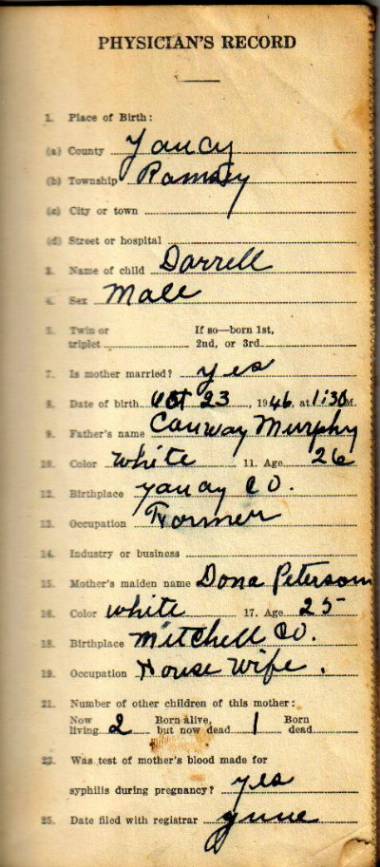 PHYSICIAN'S RECORD
1. Place of Birth:
(a) County Yancy
(b) Township Ramsey
(c) City or town
(d) Street or hospital
3. Name of child Darrell
4. Sex Male
5. Twin or If so—born 1st,
triplet 2nd, or 3rd
7. Is mother married? yes
8. Date of birth Oct 23, 1946 at 1:30 M.
9. Father's name Conway Murphy
10. Color white 11. Age 26
12. Birthplace Yancy CO.
13. Occupation Former
14. Industry or business
15. Mother's maiden name Dona Peterson
16. Color white 17. Age 25
18. Birthplace Mitchell CO.
19. Occupation House wife.
21. Number of other children of this mother:
Now Born alive, Born
living 2 but now dead 1 dead
22. Was test of mother's blood made for
syphilis during pregnancy? yes
25. Date filed with registrar